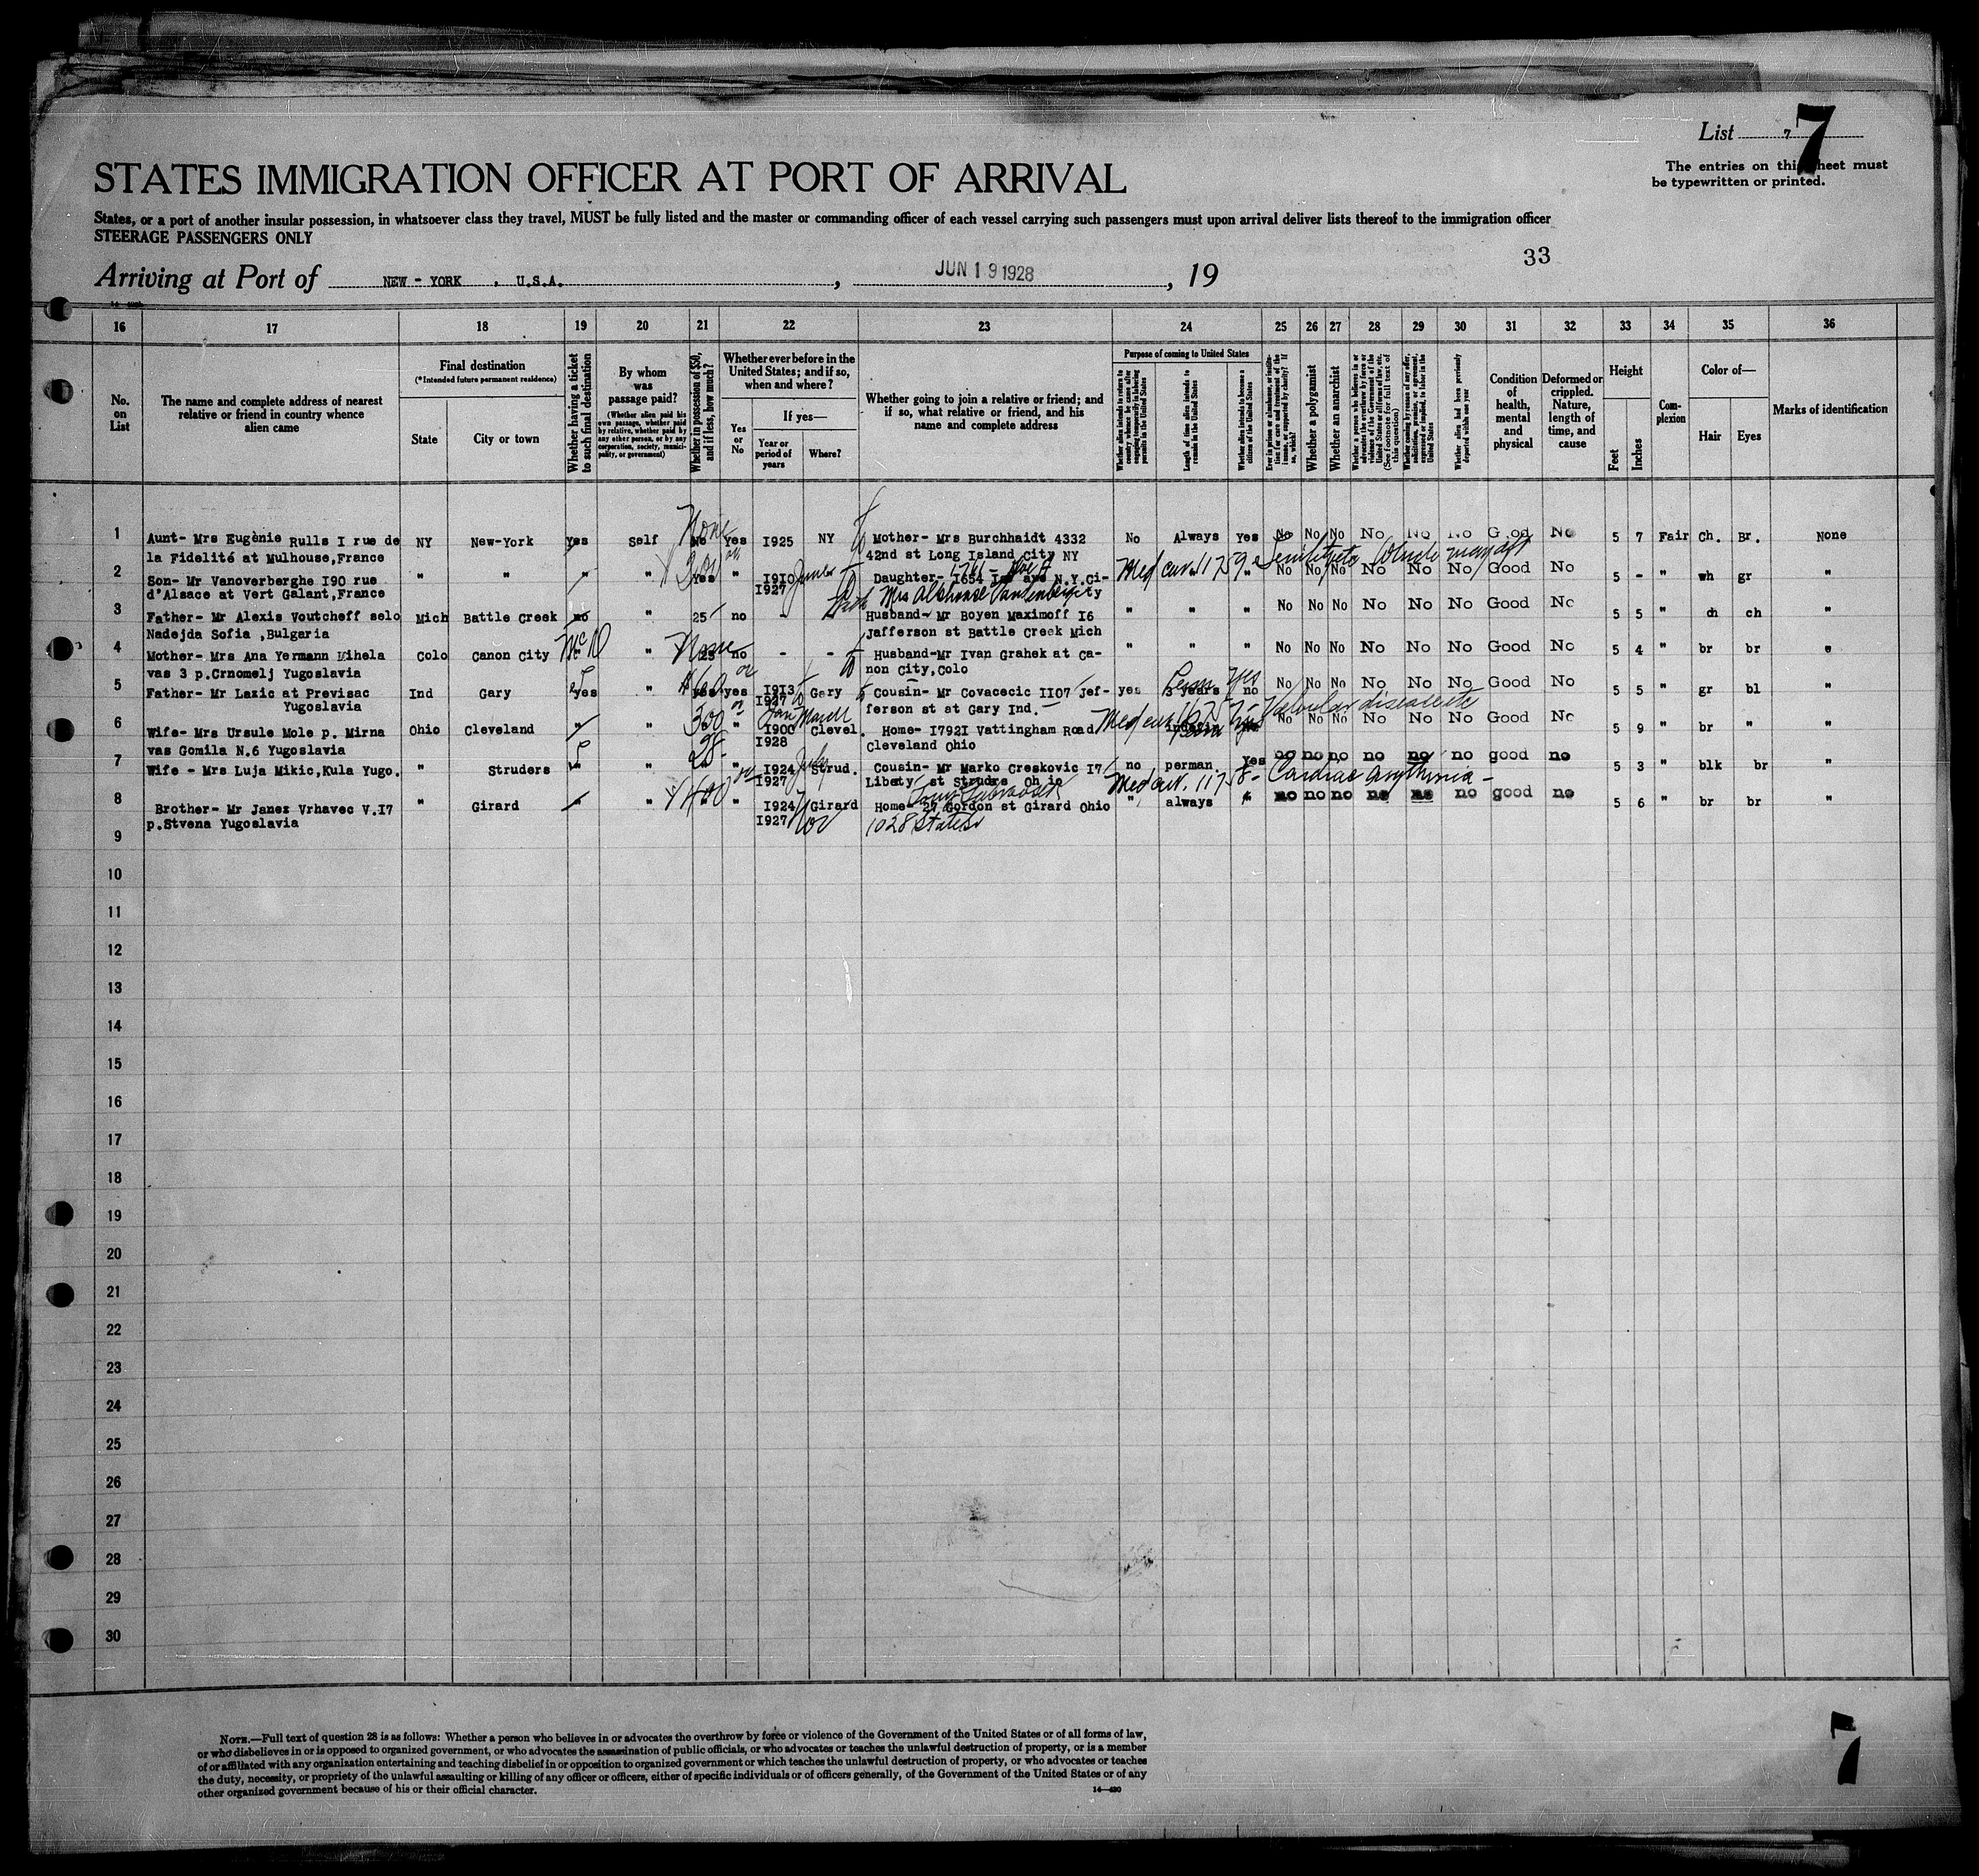 List 7 7
The entries on this sheet must
be typewritten or printed.
STATES IMMIGRATION OFFICER AT PORT OF ARRIVAL
States, or a port of another insular possession, in whatsoever class they travel, MUST be fully listed and the master or commanding officer of each vessel carrying such passengers must upon arrival deliver lists thereof to the immigration officer
STEERAGE PASSENGERS ONLY
33
Arriving at Port of NEW - YORK , U.S.A. , JUN 19 1928 , 19
16 17 18 19 20 21 22 23 24 25 26 27 28 29 30 31 32 33 34 35 36
No. on List
The name and complete address of nearest relative or friend in country whence alien came
Final destination
(*Intended future permanent residence)
State
City or town
Whether having a ticket to such final destination
By whom was passage paid?
(Whether alien paid his own passage, whether paid by relative, whether paid by any other person, or by any corporation, society, municipality, or government)
Whether in possession of $50, and if less, how much?
Whether ever before in the United States; and if so, when and where?
Yes or No
If yes—
Year or period of years
Where?
Whether going to join a relative or friend; and if so, what relative or friend, and his name and complete address
Purpose of coming to United States
Whether alien intends to return to country whence he came after engaging temporarily in laboring pursuits in the United States
Length of time alien intends to remain in the United States
Whether alien intends to become a citizen of the United States
Ever in prison or almshouse, or institution for care and treatment of the insane, or supported by charity? If so, which?
Whether a polygamist
Whether an anarchist
Whether a person who believes in or advocates the overthrow by force or violence of the Government of the United States or all forms of law, etc. (See footnote for full text of this question)
Whether coming by reason of any offer, solicitation, promise, or agreement, expressed or implied, to labor in the United States
Whether alien had been previously deported within one year
Condition of health, mental and physical
Deformed or crippled. Nature, length of time, and cause
Height
Feet
Inches
Complexion
Color of—
Hair
Eyes
Marks of identification
None
1 Aunt- Mrs Eugènie Rulls I rue de NY New-York Yes Self No Yes I925 NY Mother- Mrs Burchhaidt 4332 No Always Yes No No No No No No Good No 5 7 Fair Ch. Br. None
la Fidelité at Mulhouse,France 42nd st Long Island City NY
300 Med cer. 11759
2 Son- Mr Vanoverberghe I90 rue " " " " Yes " I9I0 Daughter- I654 Ist ave N.Y.Ci- No No No No No No Good No 5 - " wh gr "
d'Alsace at Vert Galant,France I927 ty
3 Father- Mr Alexis Voutcheff selo Mich Battle Creek no " 25 no - Husband- Mr Boyen Maximoff I6 " " " No No No No No No Good No 5 5 " ch ch "
Nadejda Sofia ,Bulgaria Jafferson st Battle Creek Mich
None
4 Mother- Mrs Ana Yermann Mihela Colo Canon City " 25 no - - Husband-Mr Ivan Grahek at Ca- " " " No No No No No No Good No 5 4 " br br "
vas 3 p.Crnomelj Yugoslavia non City,Colo
Yes
5 Father- Mr Lazic at Previsac Ind Gary Yes " Yes yes I9I3 Gary Cousin- Mr Covacecic II07 Jef- yes 3 years no No No No No No No Good No 5 5 " gr bl "
Yugoslavia I927 ferson st at Gary Ind.
300 Jan March Med cer. Valvular disease
6 Wife- Mrs Ursule Mole p. Mirna Ohio Cleveland " " " I900 Clevel. Home- I792I Vattingham Road No No No No No No Good No 5 9 " br " "
vas Gomila N.6 Yugoslavia I928 Cleveland Ohio
28 July
7 Wife - Mrs Luja Mikic,Kula Yugo. " Struders " " " I924 Strud. Cousin- Mr Marko Creskovic I7 no perman. yes no no no no no no good no 5 3 " blk br "
I927 Liberty st Strudes Ohio
400 Med cer. 11758- Cardiac arrythmia -
8 Brother- Mr Janez Vrhavec V.I7 " Girard " " " I924 Girard Home- 27 Gordon st Girard Ohio " always " no no no no no no good no 5 6 " br br "
p.Stvena Yugoslavia I927 Nov 1028 State St
9
10
11
12
13
14
15
16
17
18
19
20
21
22
23
24
25
26
27
28
29
30
NOTE.—Full text of question 28 is as follows: Whether a person who believes in or advocates the overthrow by force or violence of the Government of the United States or of all forms of law,
or who disbelieves in or is opposed to organized government, or who advocates the assassination of public officials, or who advocates or teaches the unlawful destruction of property, or is a member
of or affiliated with any organization entertaining and teaching disbelief in or opposition to organized government or which teaches the unlawful destruction of property, or who advocates or teaches
the duty, necessity, or propriety of the unlawful assaulting or killing of any officer or officers, either of specific individuals or of officers generally, of the Government of the United States or of any
other organized government because of his or their official character.
14—430
7